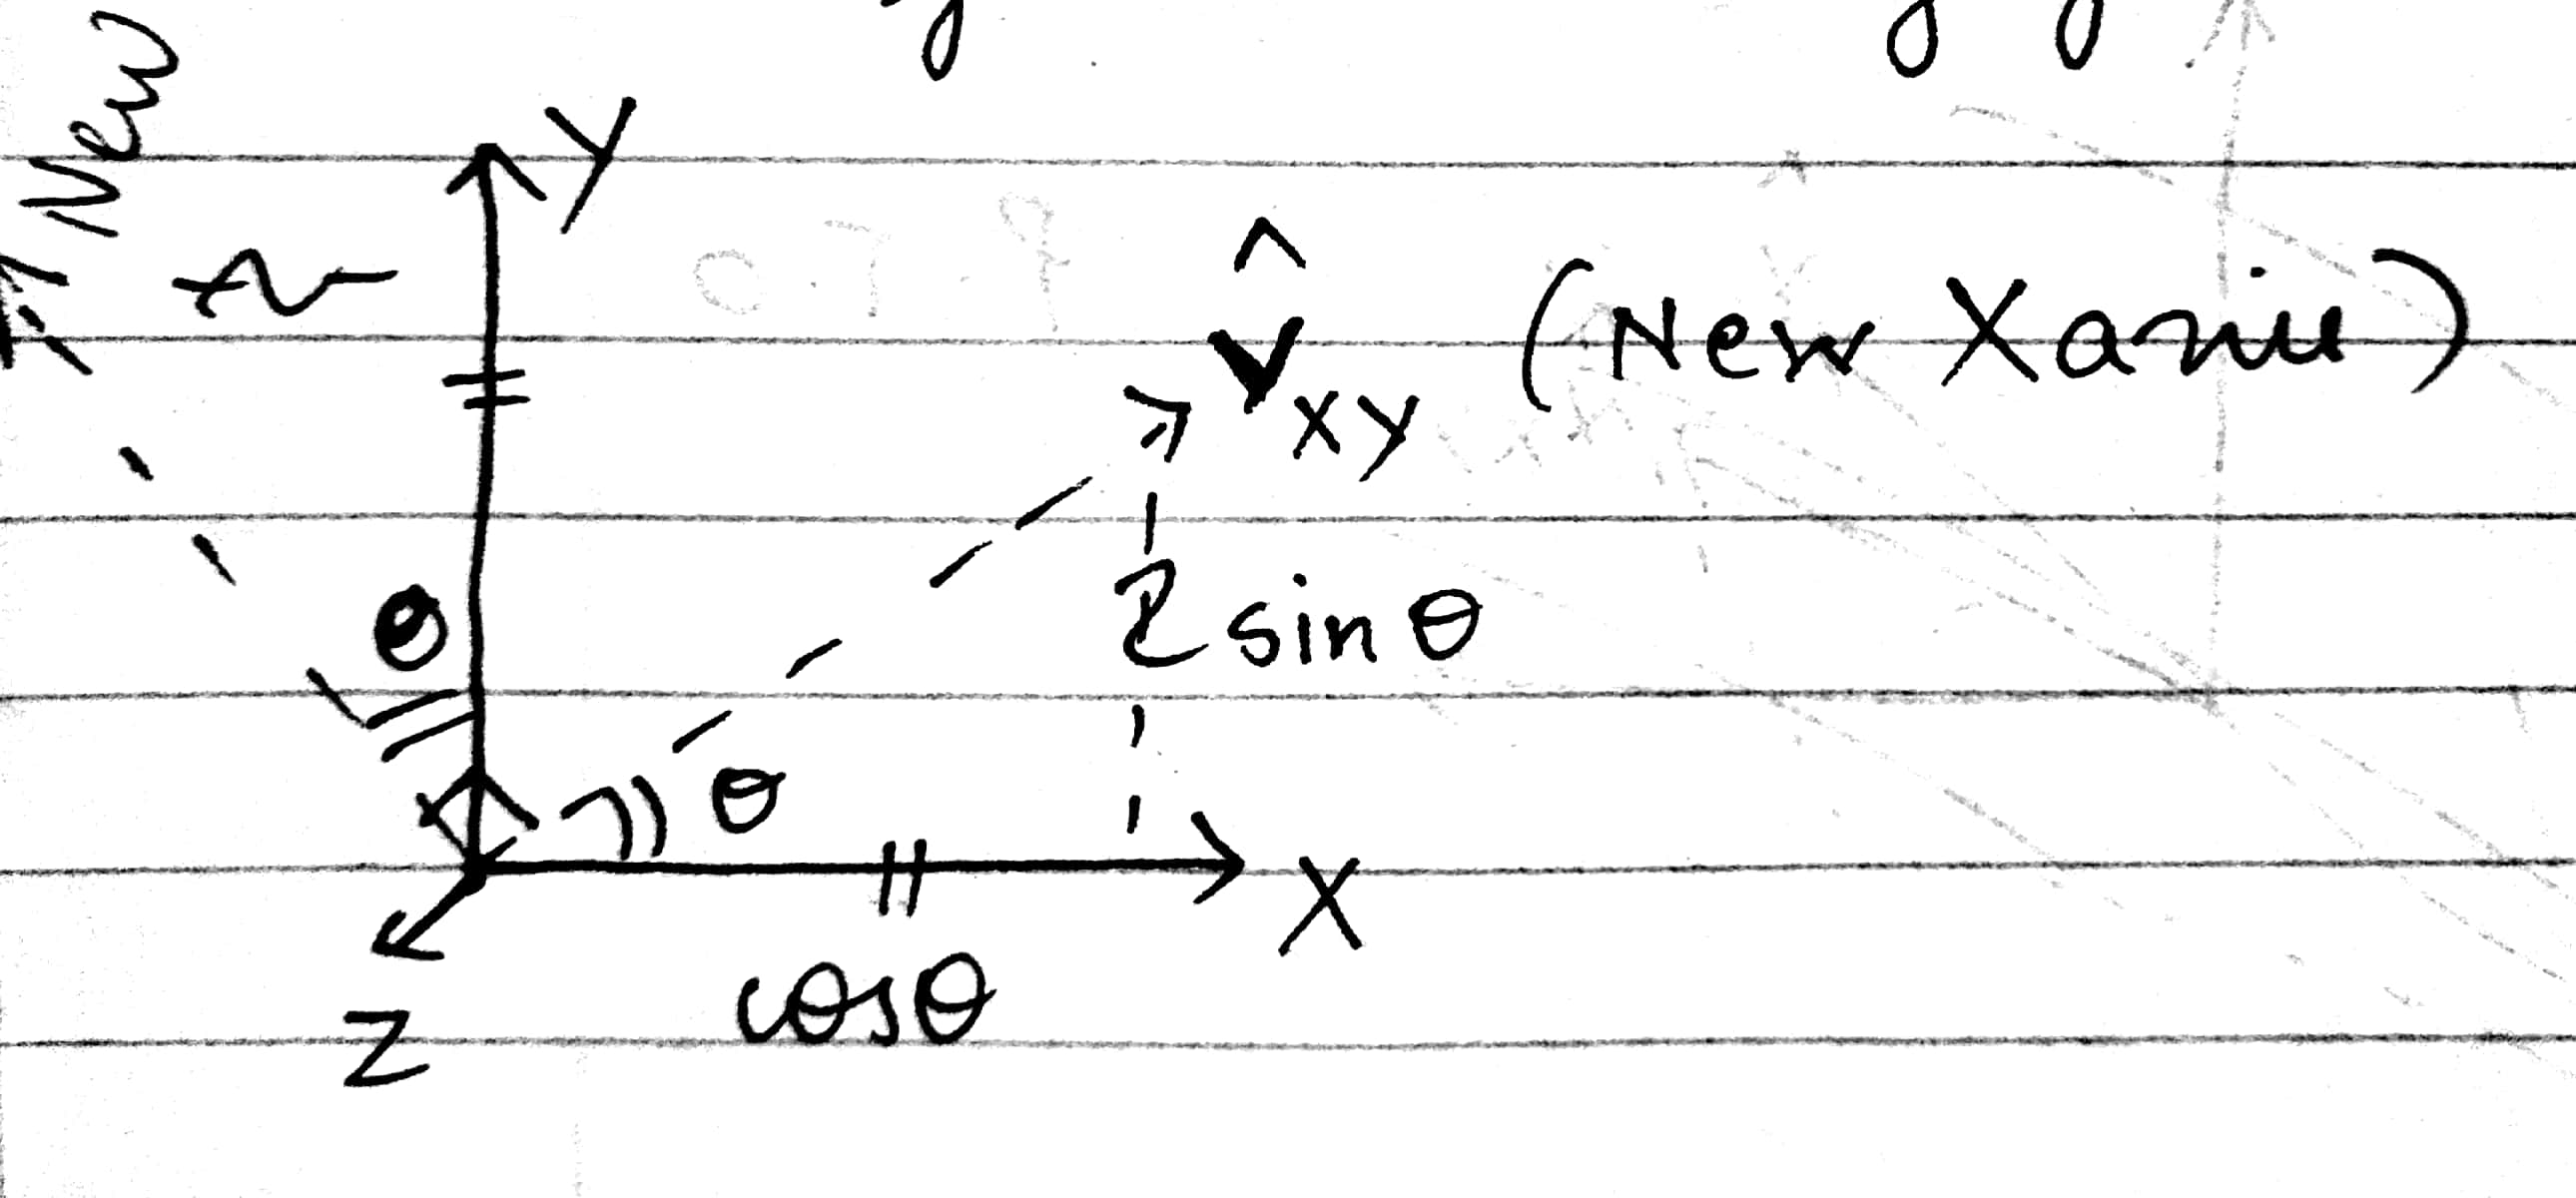 New
Y
^
v xy (New X axis)
θ
sin θ
θ
X
cosθ
Z